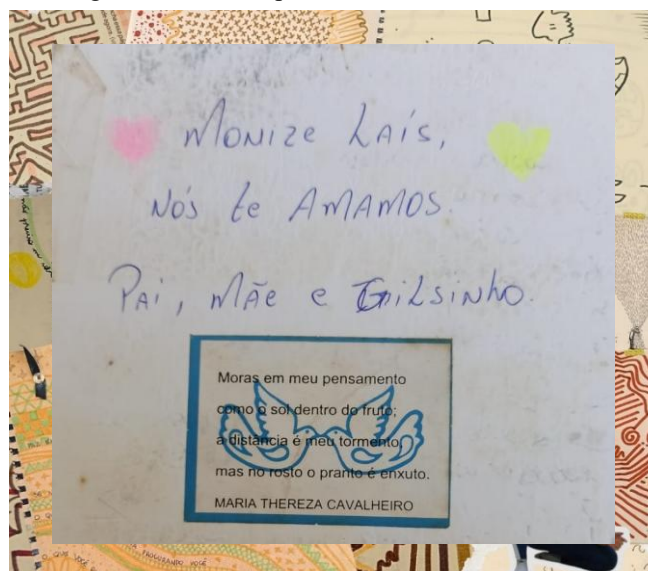 Monize Laís,
Nós te AMAMOS.
Pai, Mãe e Gilsinho.
Moras em meu pensamento
como o sol dentro do fruto;
a distância é meu tormento,
mas no rosto o pranto é enxuto.
MARIA THEREZA CAVALHEIRO
O QUE VOCÊ
PROCURANDO VOCÊ